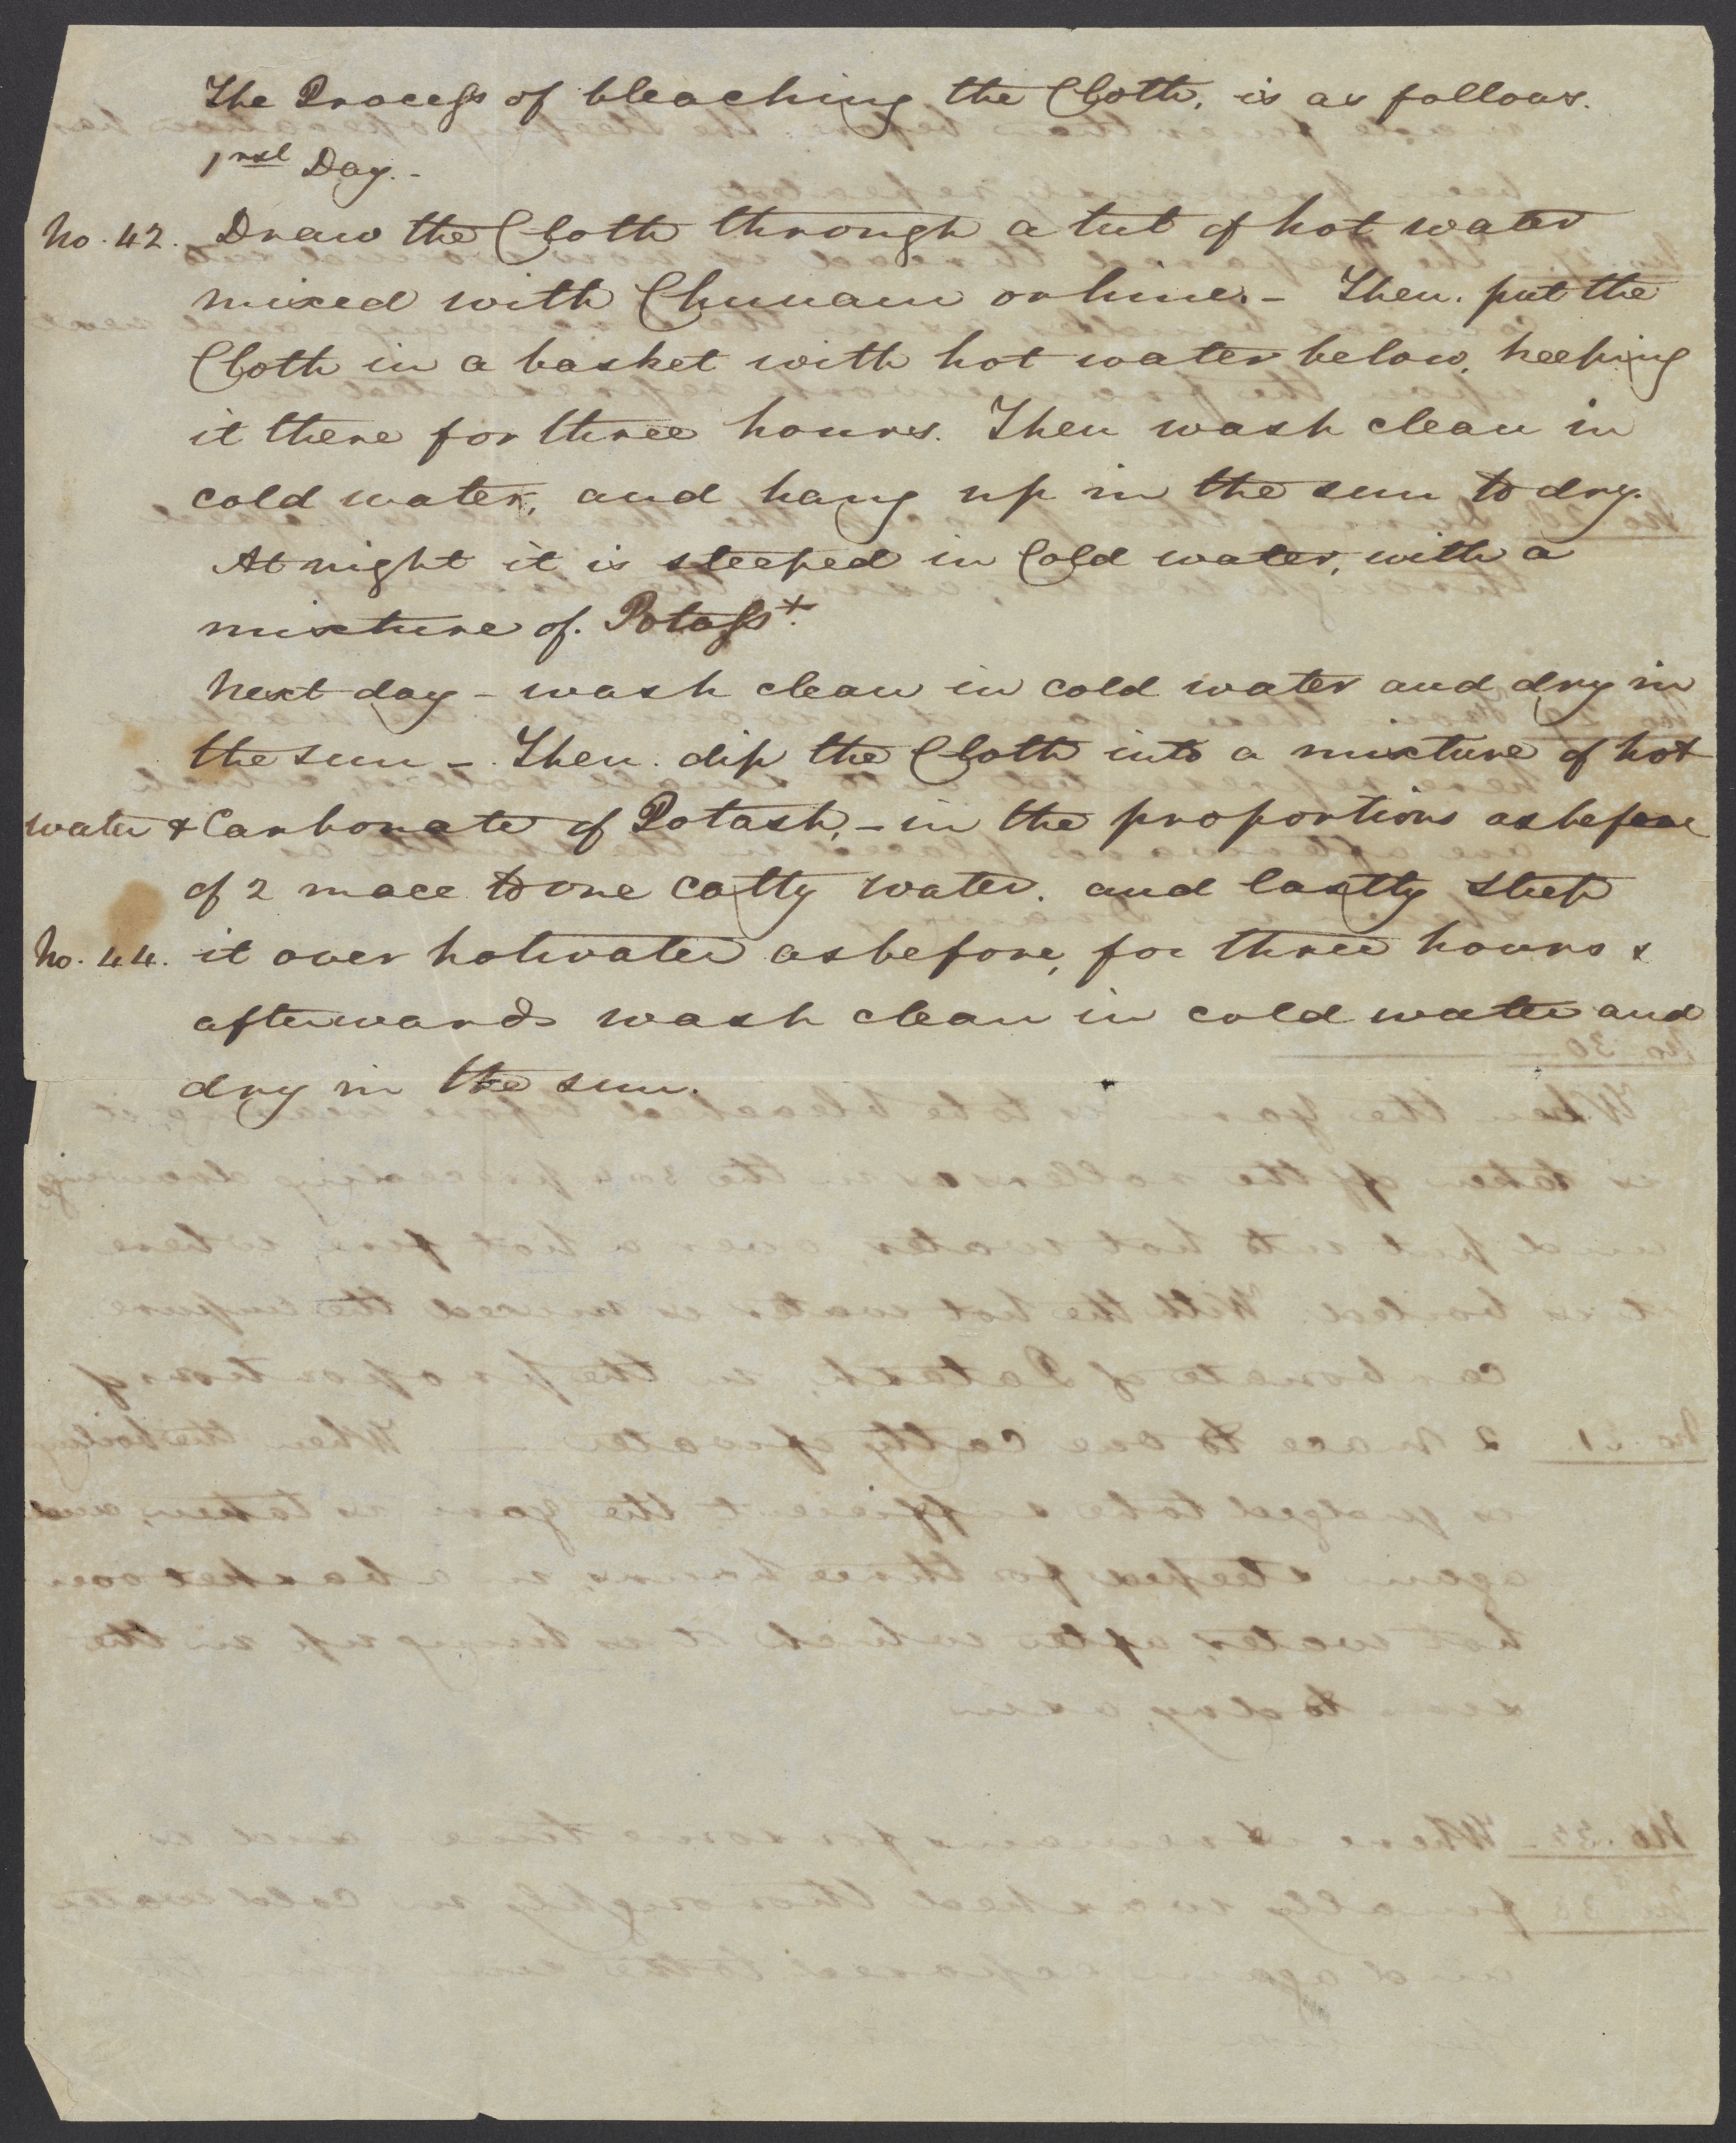 The Process of bleaching the Cloth, is as follows.
1rst Day.-
No. 42. Draw the Cloth through a tub of hot water
mixed with Chunam or lime.- Then. put the
Cloth in a basket with hot water below, keeping
it there for three hours. Then wash clean in
cold water, and hang up in the sun to dry.
At night it is steeped in Cold water, with a
mixture of. Potass+.
Next day - wash clean in cold water and dry in
the sun -. Then. dip the Cloth into a mixture of hot
water & Carbonate of Potash, - in the proportions as before
of 2 mace to one Catty water. and lastly steep
No. 44. it over hot water as before, for three hours &
afterwards wash clean in cold water and
dry in the sun.